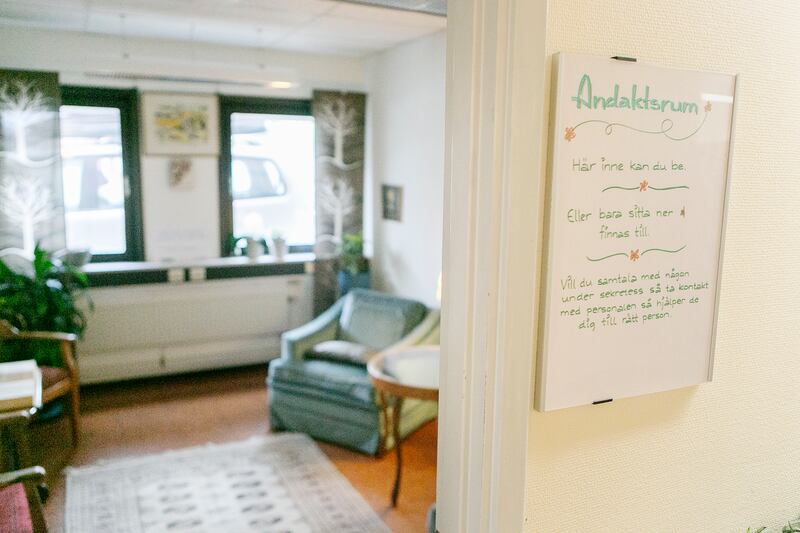 Andaktsrum
Här inne kan du be.
Eller bara sitta ner
finnas till.
Vill du samtala med någon
under sekretess så ta kontakt
med personalen så hjälper de
dig till rätt person.